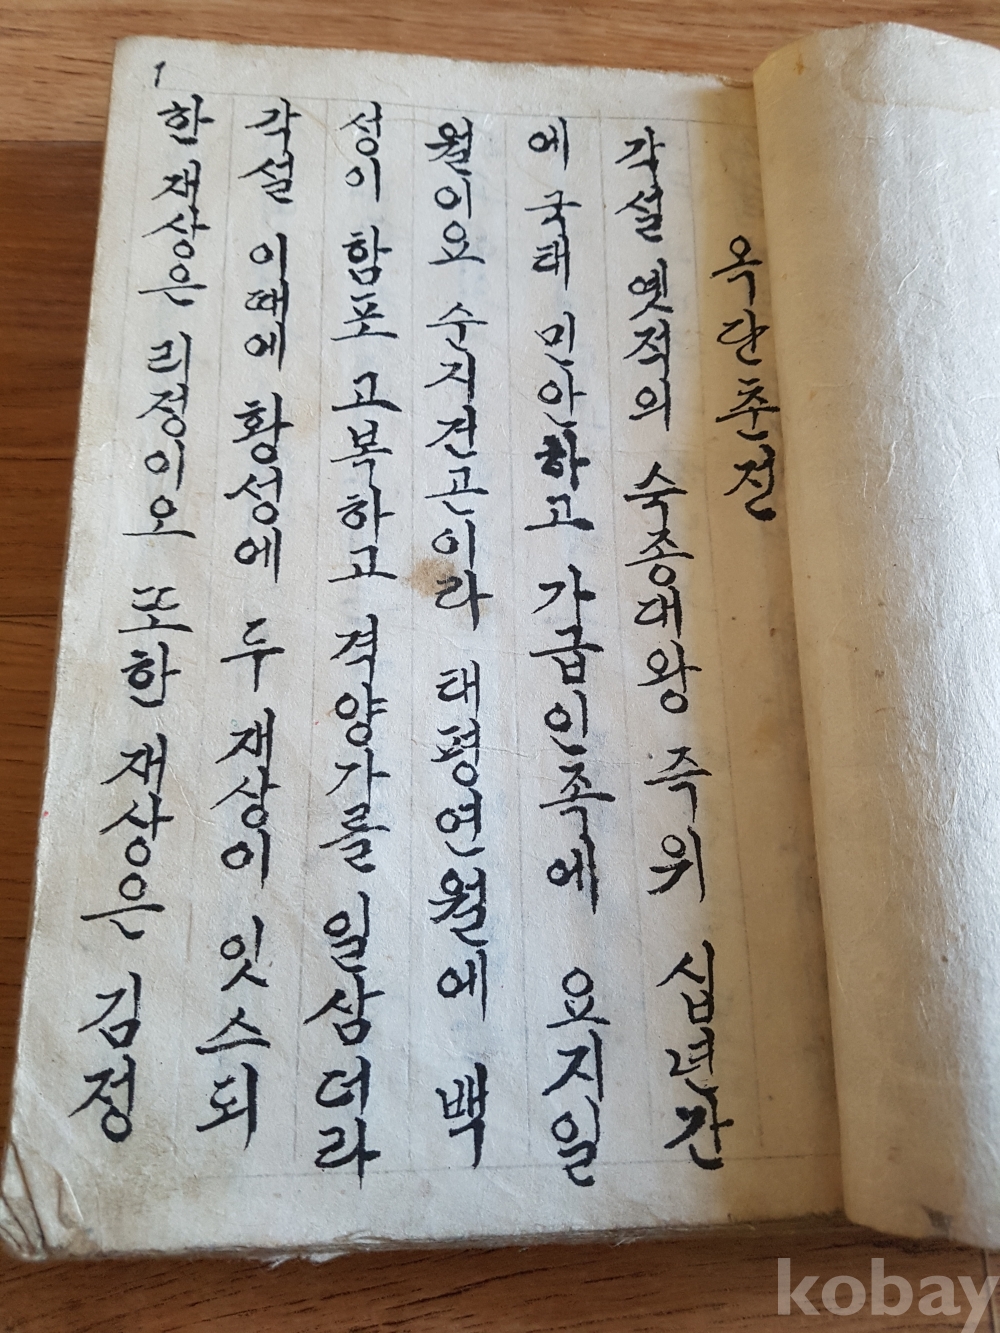 1
옥단춘전
각설 옛적의 숙종대왕 즉위 십년간
에 국태 민안하고 가급인족에 요지일
월이요 수지건곤이라 태평연월에 백
성이 함포 고복하고 격양가를 일삼더라
각설 이때에 황성에 두 재상이 잇스되
한 재상은 리정이오 또한 재상은 김정
kobay